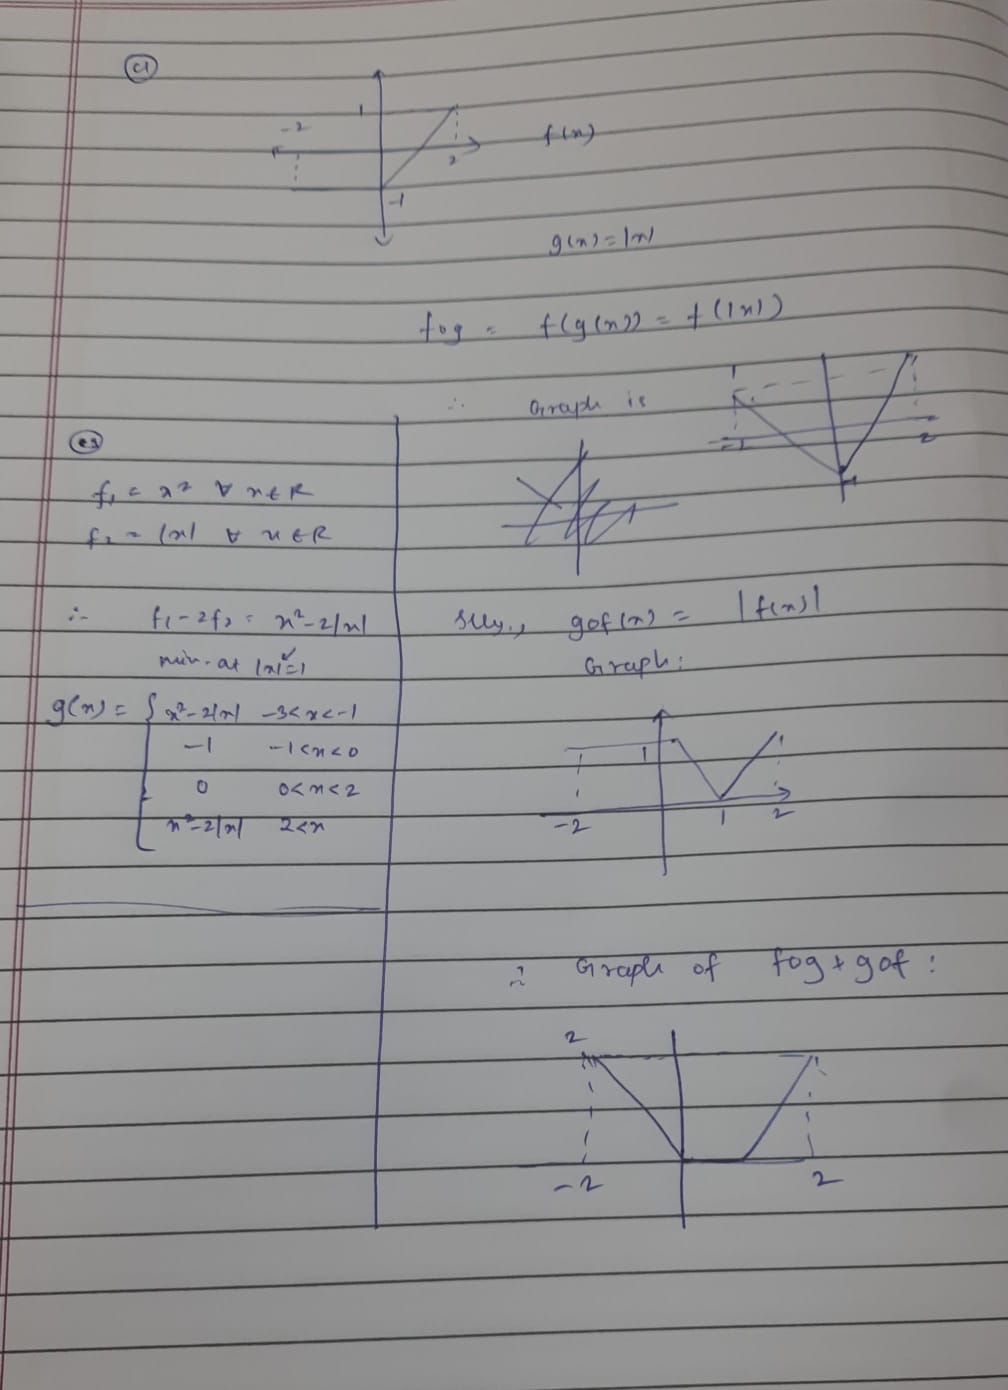 C1
1
-2
f(x)
2
-1
g(x) = |x|
fog = f(g(x)) = f(|x|)
∴ Graph is
2
-1
f₁ = x² ∀ x∈R
f₂ = |x| ∀ x∈R
∴ f₁-2f₂ = x²-2|x|
min. at |x|=1
g(x) = { x²-2|x| -3<x<-1
-1 -1<x<0
0 0<x<2
x²-2|x| 2<x
Slly., gof(x) = |f(x)|
Graph:
1
-2 1 2
∴ Graph of fog + gof :
2
-2 2